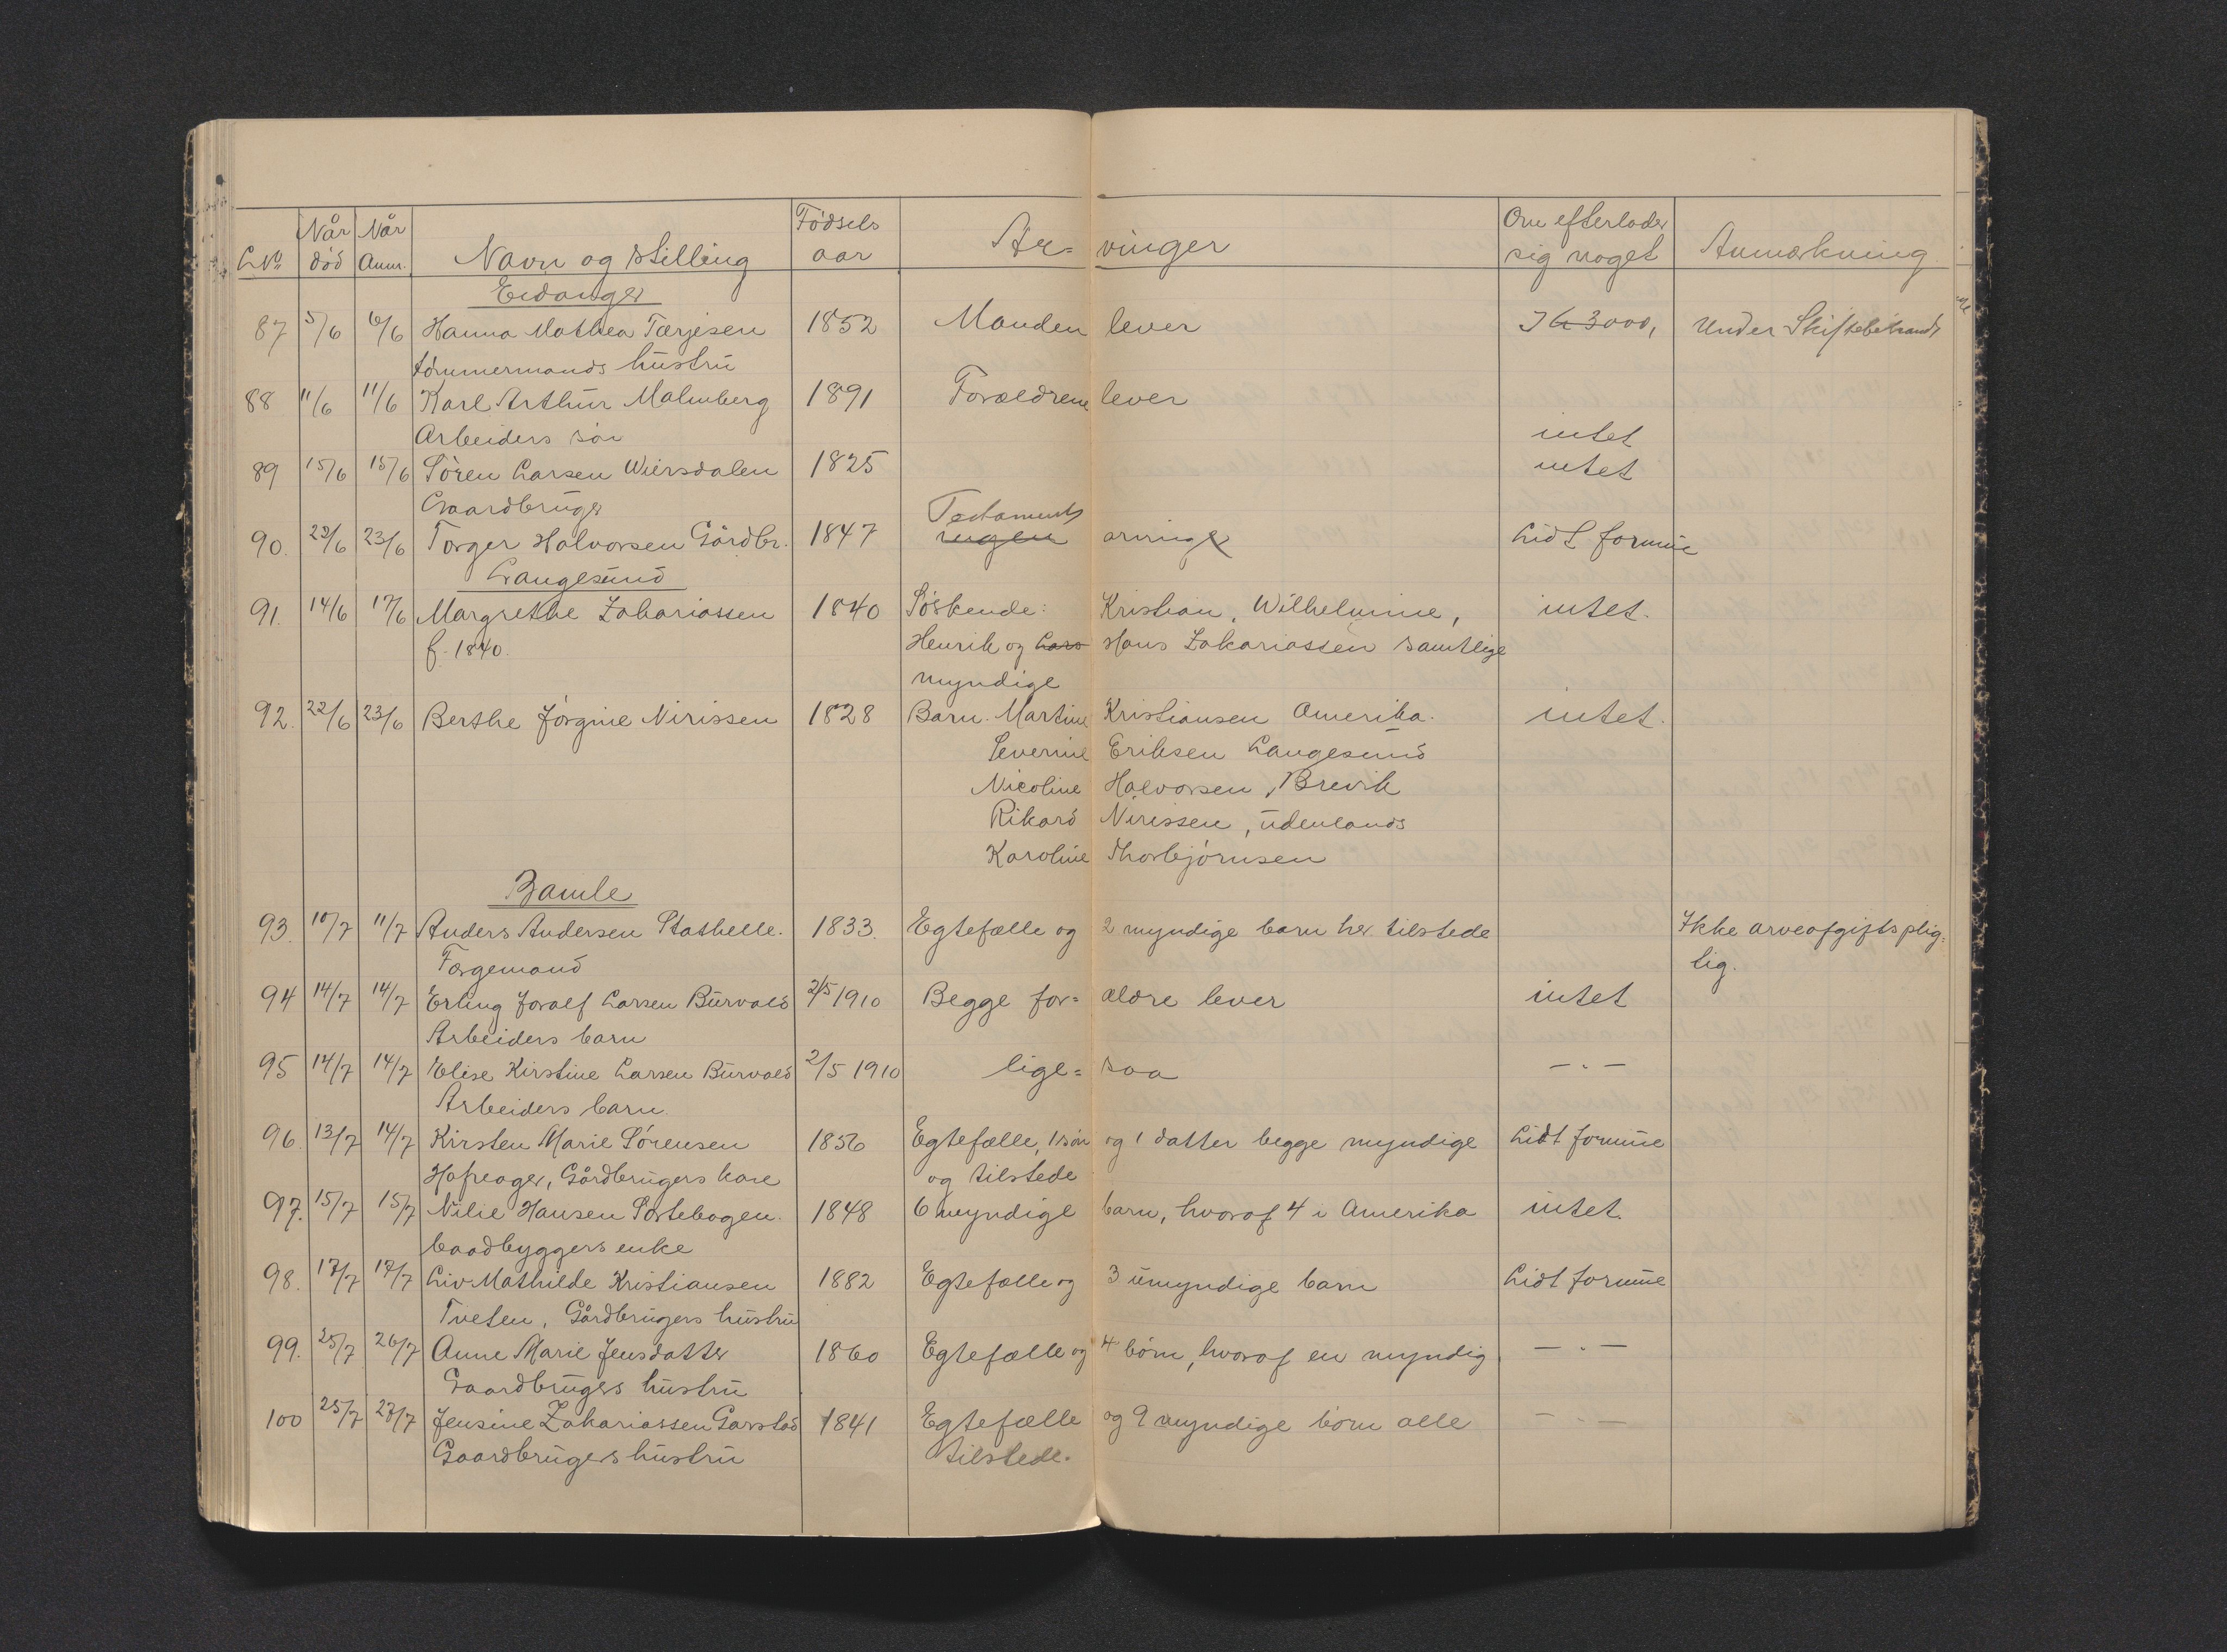 Når Når Fødsels Om efterlader
LNo død Anm. Navn og Stilling aar Ar= vinger sig noget Anmærkning.
Eidanger
87 5/6 6/6 Hanna Mathea Tærjesen 1852 Manden lever 3000, Under Skiftebehandl
tømmermands hustru
88 11/6 11/6 Karl Arthur Malmberg 1891 Forældrene lever
Arbeiders søn intet
89 15/6 15/6 Søren Larsen Wiersdalen 1825 intet
Gaardbruger Testaments
90. 22/6 23/6 Torger Halvorsen Gårdbr. 1847 ingen arving Lidt formue
Langesund
91. 14/6 17/6 Margrethe Zakariassen 1840 Søskende: Kristian, Wilhelmine, intet.
f. 1840. Henrik og Lars Hans Zakariassen samtlige
myndige
92. 22/6 23/6 Berthe Jørgine Nirissen 1828 Barn. Martine Kristiansen Amerika. intet.
Severine Eriksen Langesund
Nicoline Halvorsen, Brevik
Rikard Nirissen, udenlands
Karoline Thorbjørnsen
Bamle
93. 10/7 11/7 Anders Andersen Stathelle. 1833. Egtefælle og 2 myndige barn her tilstede Ikke arveafgiftsplig=
Færgemand lig.
94 14/7 14/7 Erling Joralf Larsen Burvald 2/5 1910 Begge for= ældre lever intet
Arbeiders barn
95 14/7 14/7 Elise Kirstine Larsen Burvald 2/5 1910 lige= saa — " —
Arbeiders barn.
96. 13/7 14/7 Kirsten Marie Sørensen 1856 Egtefælle, 1 søn og 1 datter begge myndige Lidt formue
Hafreager, Gårdbrugers kone og tilstede
97. 15/7 15/7 Nilie Hansen Sortebogen. 1848 6 myndige barn, hvoraf 4 i Amerika intet.
baadbyggers enke
98. 17/7 17/7 Liv Mathilde Kristiansen 1882 Egtefælle og 3 umyndige barn Lidt formue
Tveten, Gårdbrugers hustru
99. 25/7 26/7 Anne Marie Jensdatter 1860 Egtefælle og 4 børn, hvoraf en myndig. — " —
Gaardbrugers hustru
100 25/7 27/7 Jensine Zakariassen Garstad 1841 Egtefælle og 9 myndige børn alle — " —
Gaardbrugers hustru tilstede.